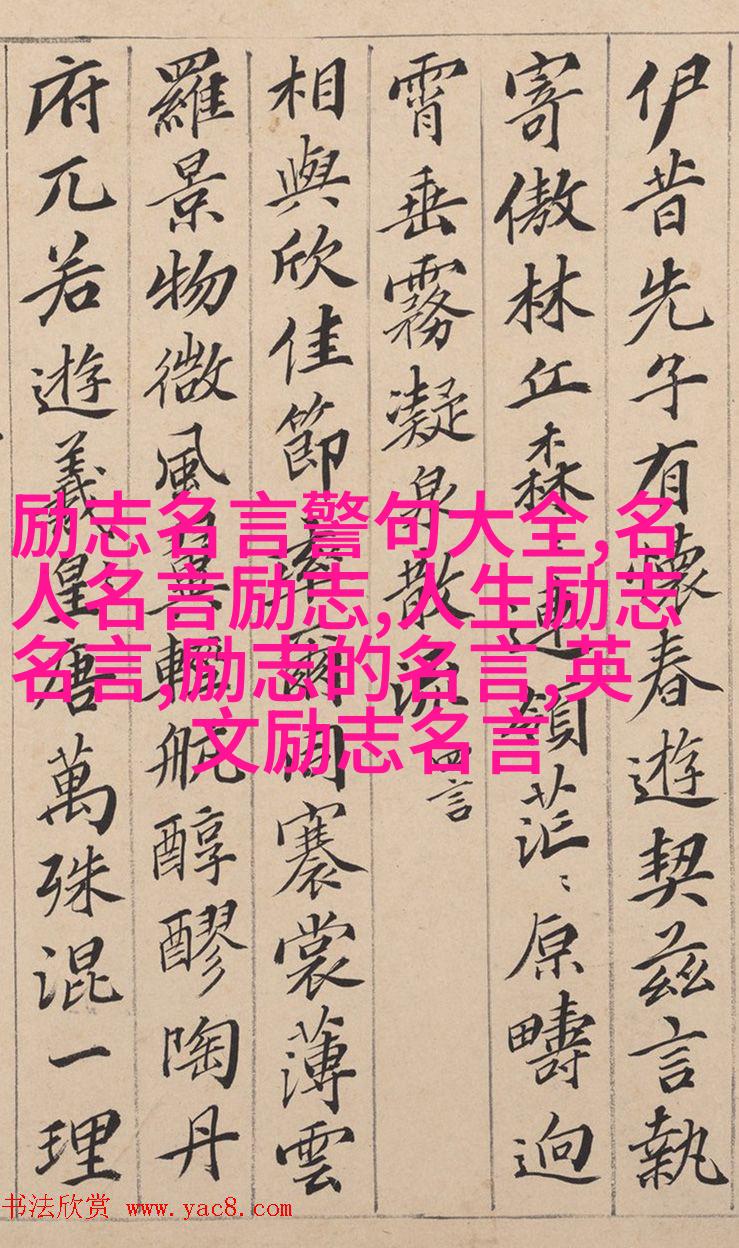 伊昔先子有懷春遊契茲言執
寄傲林丘森〻連嶺茫〻原疇迥
霄垂霧凝泉散流 四言
相與欣佳節率爾同褰裳薄雲
羅景物微風翼輕航醇醪陶丹
府兀若遊羲皇唐萬殊混一理
励志名言警句大全,名
人名言励志,人生励志
名言,励志的名言,英
文励志名言
书法欣赏 www.yac8.com